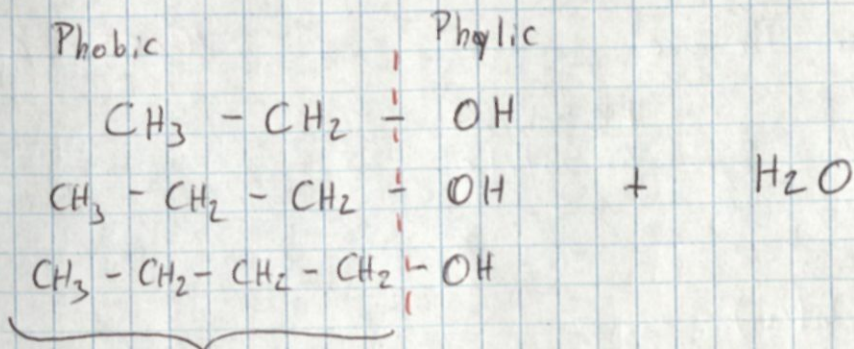 Phobic Phylic
CH₃ - CH₂ - OH
CH₃ - CH₂ - CH₂ - OH + H₂O
CH₃ - CH₂ - CH₂ - CH₂ - OH